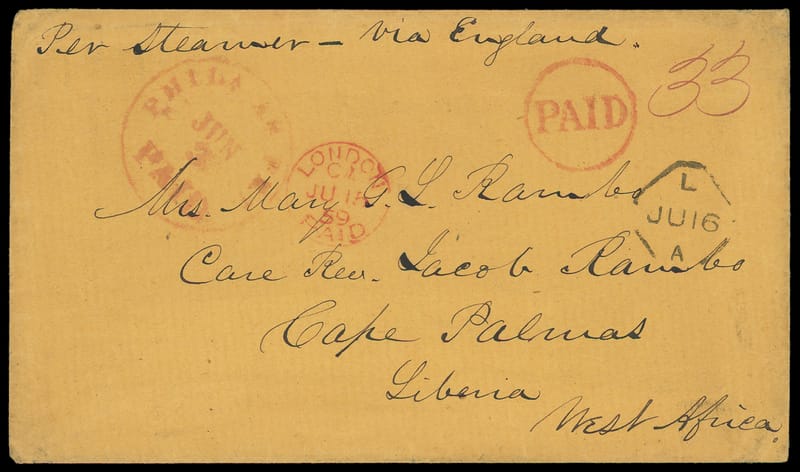 Per Steamer – via England.
PAID
33
PHILA
JUN
PAID
LONDON
CI
JU 16
59
PAID
L
JU16
A
Mrs. Mary G. L. Rambo
Care Rev. Jacob Rambo
Cape Palmas
Liberia
West Africa.